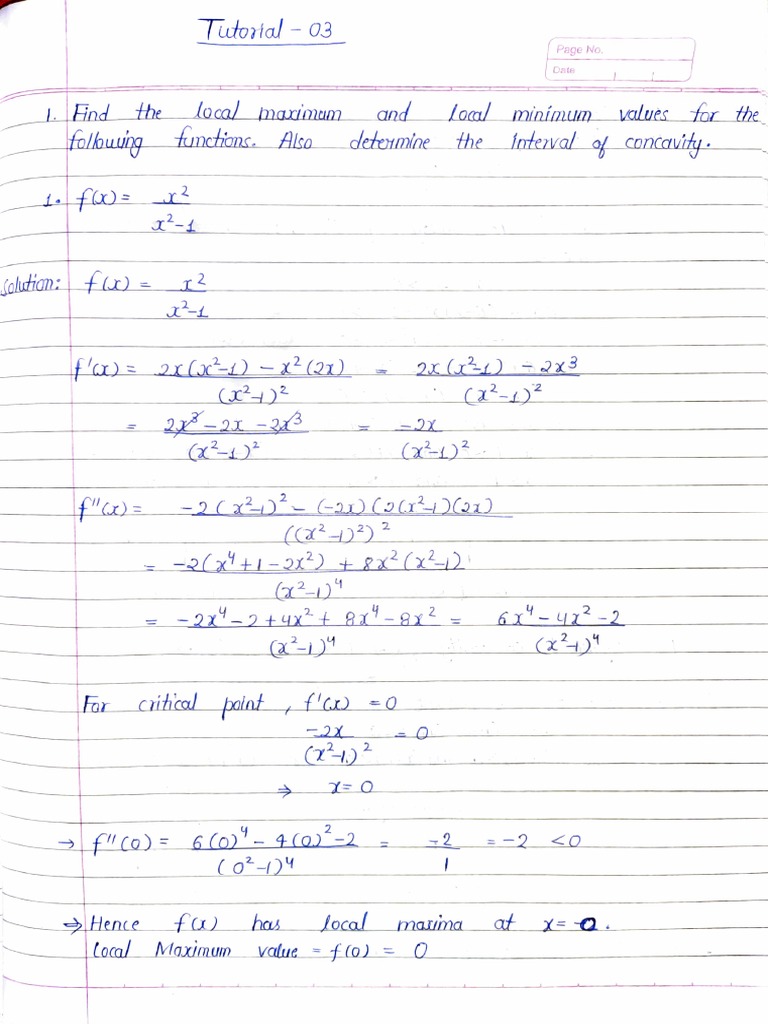 Tutorial - 03
Page No.
Date
1. Find the local maximum and local minimum values for the
following functions. Also determine the interval of concavity.
1. f(x) = x²/(x²-1)
Solution: f(x) = x²/(x²-1)
f'(x) = (2x(x²-1) - x²(2x))/(x²-1)² = (2x(x²-1) - 2x³)/(x²-1)²
= (2x³ - 2x - 2x³)/(x²-1)² = -2x/(x²-1)²
f''(x) = (-2(x²-1)² - (-2x)(2(x²-1)(2x))/((x²-1)²)²
= (-2(x⁴+1-2x²) + 8x²(x²-1))/(x²-1)⁴
= (-2x⁴-2+4x²+8x⁴-8x²)/(x²-1)⁴ = (6x⁴-4x²-2)/(x²-1)⁴
For critical point, f'(x) = 0
-2x/(x²-1)² = 0
⇒ x = 0
→ f''(0) = (6(0)⁴ - 4(0)² - 2)/(0²-1)⁴ = -2/1 = -2 < 0
⇒ Hence f(x) has local maxima at x = 0.
Local Maximum value = f(0) = 0